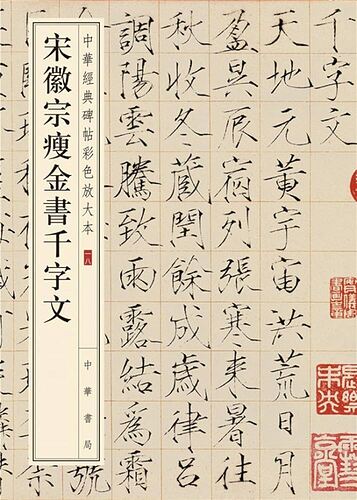 千字文
天地元黃宇宙洪荒日月
盈昃辰宿列張寒來暑往
秋收冬藏閏餘成歲律呂
調陽雲騰致雨露結爲霜
號
中華經典碑帖彩色放大本
一八
中華書局
宋徽宗瘦金書千字文